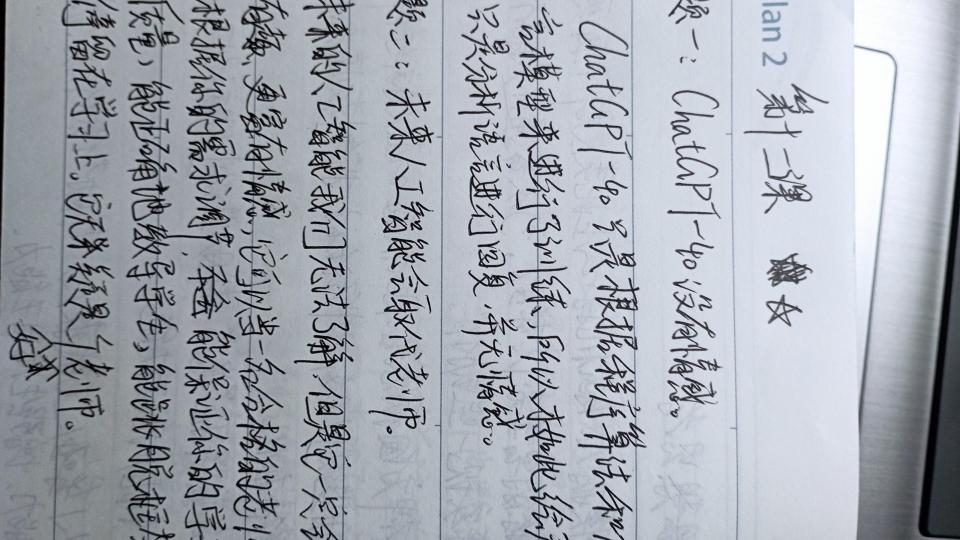 lan 2
第十二课
题一：ChatGPT-4o没有情感。
ChatGPT-4o只是根据程序算法和
言模型来进行了训练，所以才如此给
只是分析语言进行回复，并无情感。
题二：未来人工智能会取代老师。
未来的人工智能我们无法了解，但是它一定会
有趣，更富有情感，它可以当一名合格的老
根据你的需求调节，能保证你的学
质量，能正确地教导学生，能
停留在学习上。它无疑是个好老师。